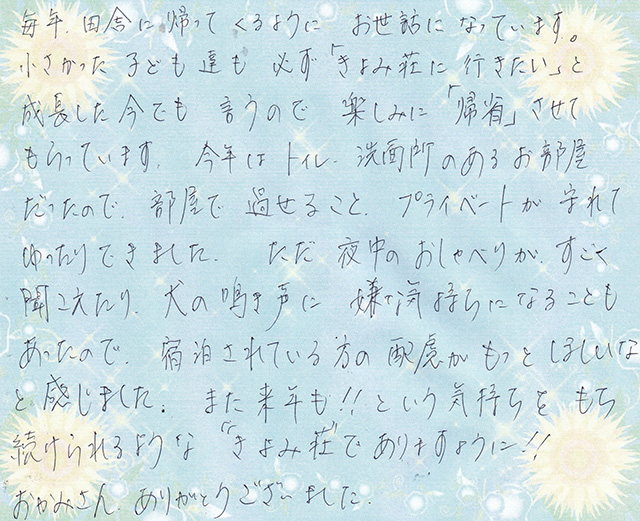 毎年、田舎に帰ってくるように お世話になっています。
小さかった子ども達も 必ず「きよみ荘に行きたい」と
成長した今でも 言うので 楽しみに「帰省」させて
もらっています。 今年は トイレ、洗面所のあるお部屋
だったので、部屋で過せること、プライベートが守れて
ゆったりできました。 ただ 夜中のおしゃべりが、すごく
聞こえたり、犬の鳴き声に 嫌な気持ちになることも
あったので 宿泊されている方の配慮がもっとほしいな
と感じました。 また来年も!! という気持ちをもち
続けられるような "きよみ荘"でありますように!!
おかみさん、ありがとうございました。